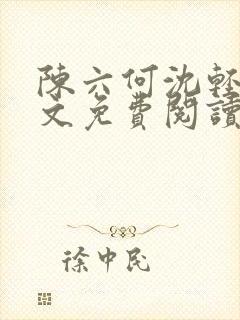 陳六何沈輕
文免費閱讀
徐中民